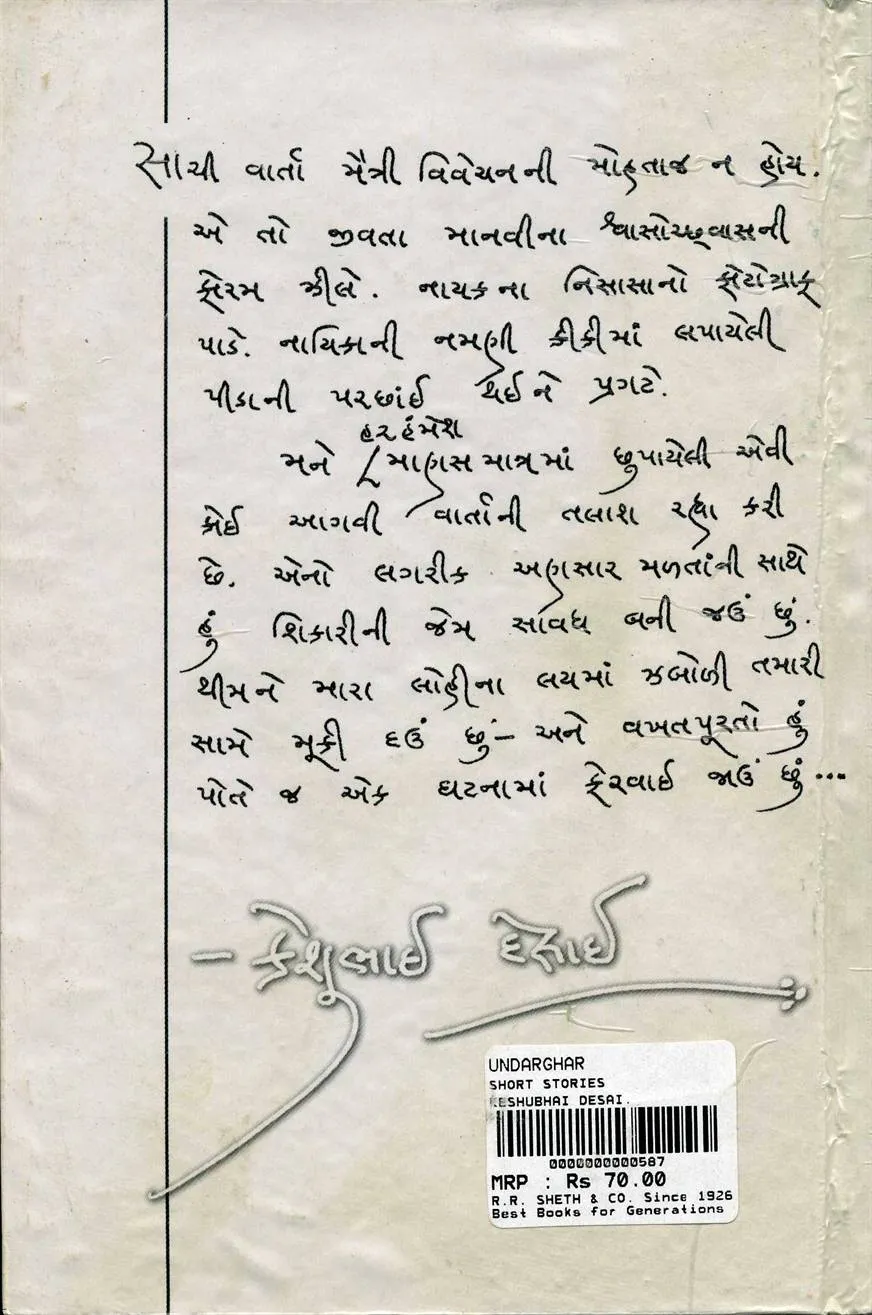 સાચી વાર્તા મૈત્રી વિવેચનની મોહતાજ ન હોય.
એ તો જીવતા માનવીના શ્વાસોચ્છ્વાસની
ફોરમ ઝીલે. નાયકના નિસાસાનો ફોટોગ્રાફ
પાડે. નાયિકાની નમણી કીકીમાં લપાયેલી
પીડાની પરછાંઈ થઈને પ્રગટે.
હરહંમેશ
મને માણસમાત્રમાં છુપાયેલી એવી
કોઈ આગવી વાર્તાની તલાશ રહ્યા કરી
છે. એનો લગરીક અણસાર મળતાંની સાથે
હું શિકારીની જેમ સાવધ બની જઉં છું.
થીમને મારા લોહીના લયમાં ઝબોળી તમારી
સામે મૂકી દઉં છું - અને વખતપૂરતો હું
પોતે જ એક ઘટનામાં ફેરવાઈ જાઉં છું...
- કેશુભાઈ દેસાઈ
UNDARGHAR
SHORT STORIES
KESHUBHAI DESAI.
0000000000587
MRP : Rs 70.00
R.R. SHETH & CO. Since 1926
Best Books for Generations